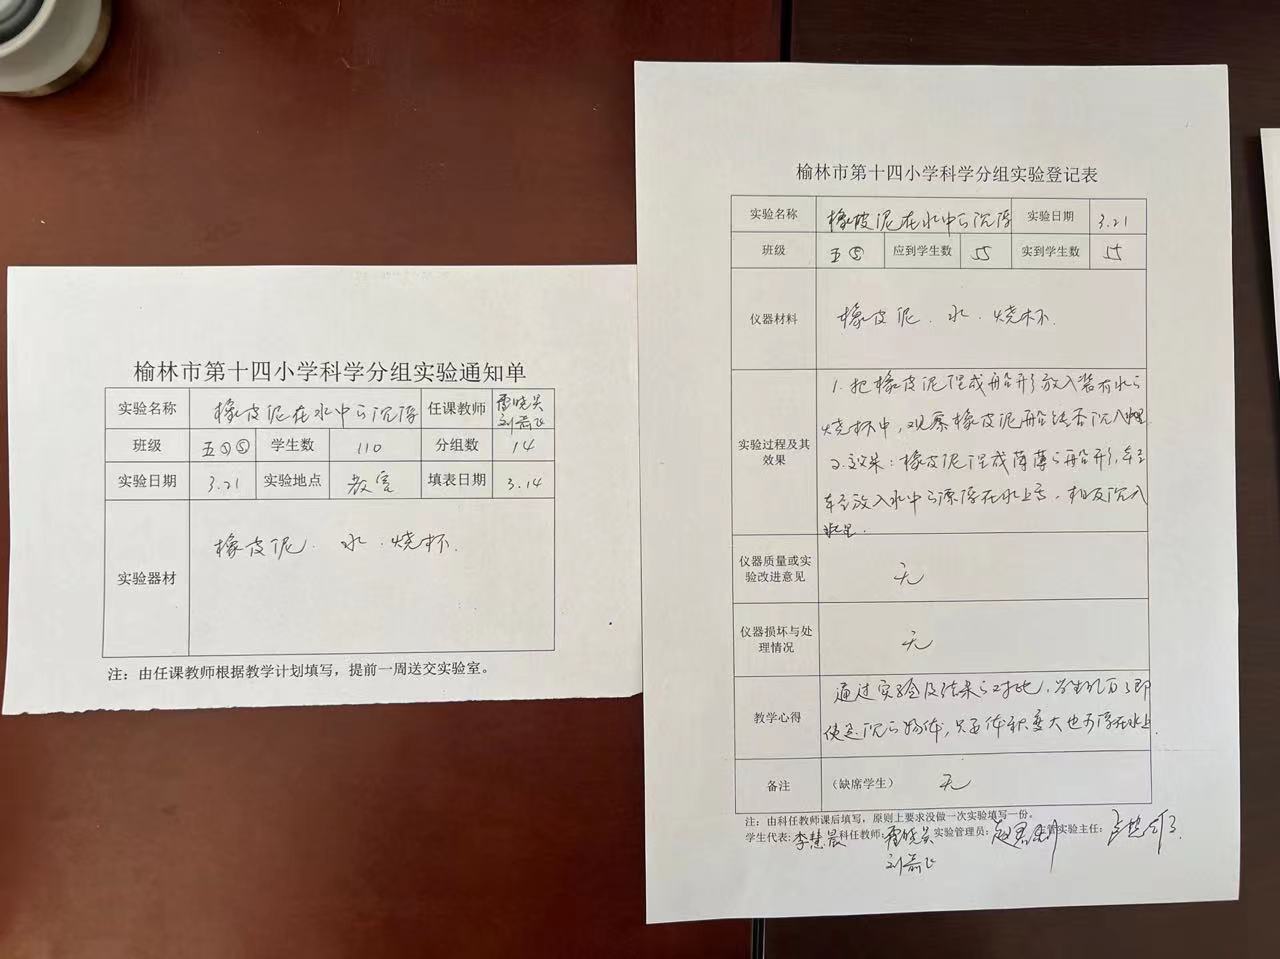 榆林市第十四小学科学分组实验通知单
实验名称 橡皮泥在水中的沉浮 任课教师
班级 五 学生数 110 分组数 14
实验日期 3.21 实验地点 教室 填表日期 3.14
实验器材 橡皮泥、水、烧杯.
注：由任课教师根据教学计划填写，提前一周送交实验室。
榆林市第十四小学科学分组实验登记表
实验名称 橡皮泥在水中的沉浮 实验日期 3.21
班级 五⑤ 应到学生数 55 实到学生数 55
仪器材料 橡皮泥、水、烧杯.
1. 把橡皮泥捏成船形放入装有水的
烧杯中，观察橡皮泥船是否沉入水里
实验过程及其
效果
2. 效果：橡皮泥捏成薄薄的船形，轻
轻放入水中的漂浮在水上言，相反沉入
水里.
仪器质量或实
验改进意见
无
仪器损坏与处
理情况
无
通过实验及结果的对比，学生明白了即
教学心得
使是沉的物体，只要体积变大也可浮在水上.
备注 （缺席学生） 无
注：由科任教师课后填写，原则上要求没做一次实验填写一份。
学生代表：李慧晨 科任教师： 实验管理员： 主管实验主任：